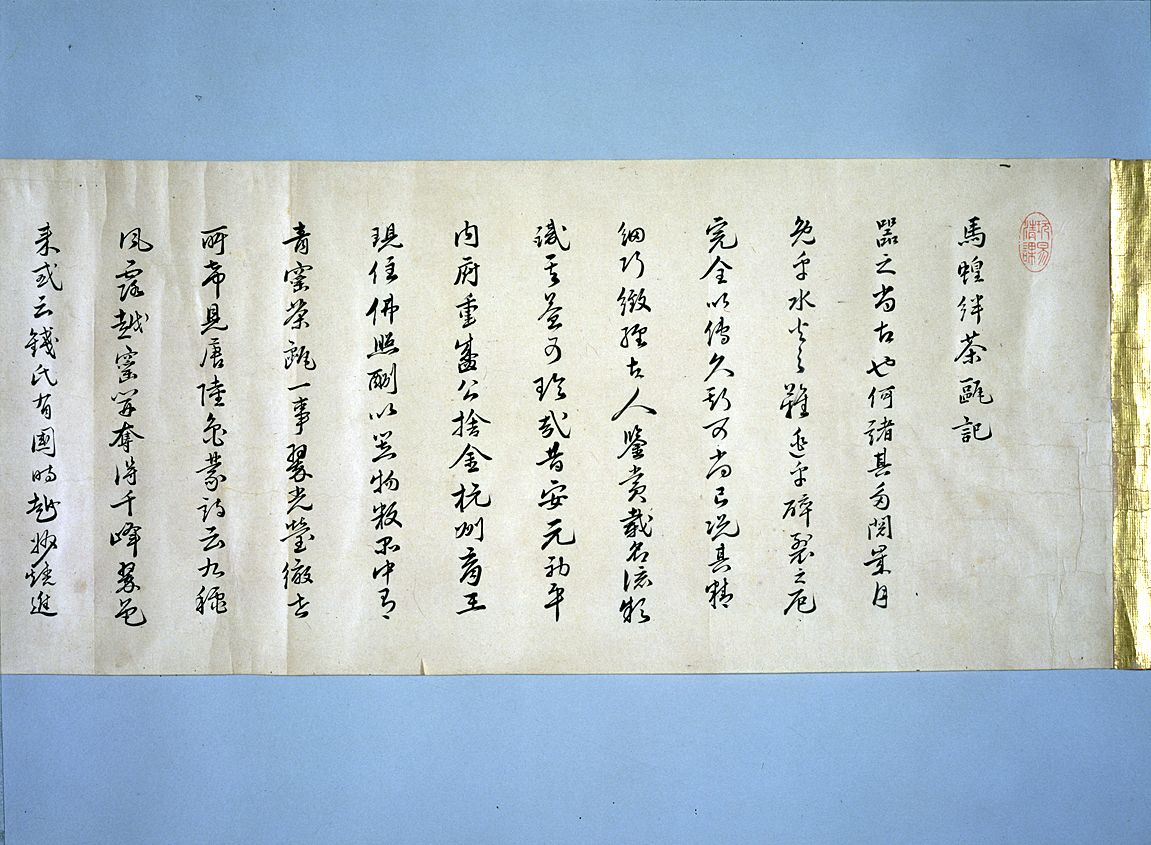 玩易清課
馬蝗絆茶甌記
器之尚古也何諸其多閱歲月
免乎水火之難逃乎碎裂之厄
完全以傳久斯可尚已況其精
細巧緻經古人鑒賞載名流
識其益可珍哉昔安元初平
内府重盛公捨金杭州育王
現住佛照酬以器物数品中有
青窯茶甌一事翠光瑩徹世
所希見唐陸龜蒙詩云九穐
風露越窯開奪得千峰翠色
來或云錢氏有國時越州燒進